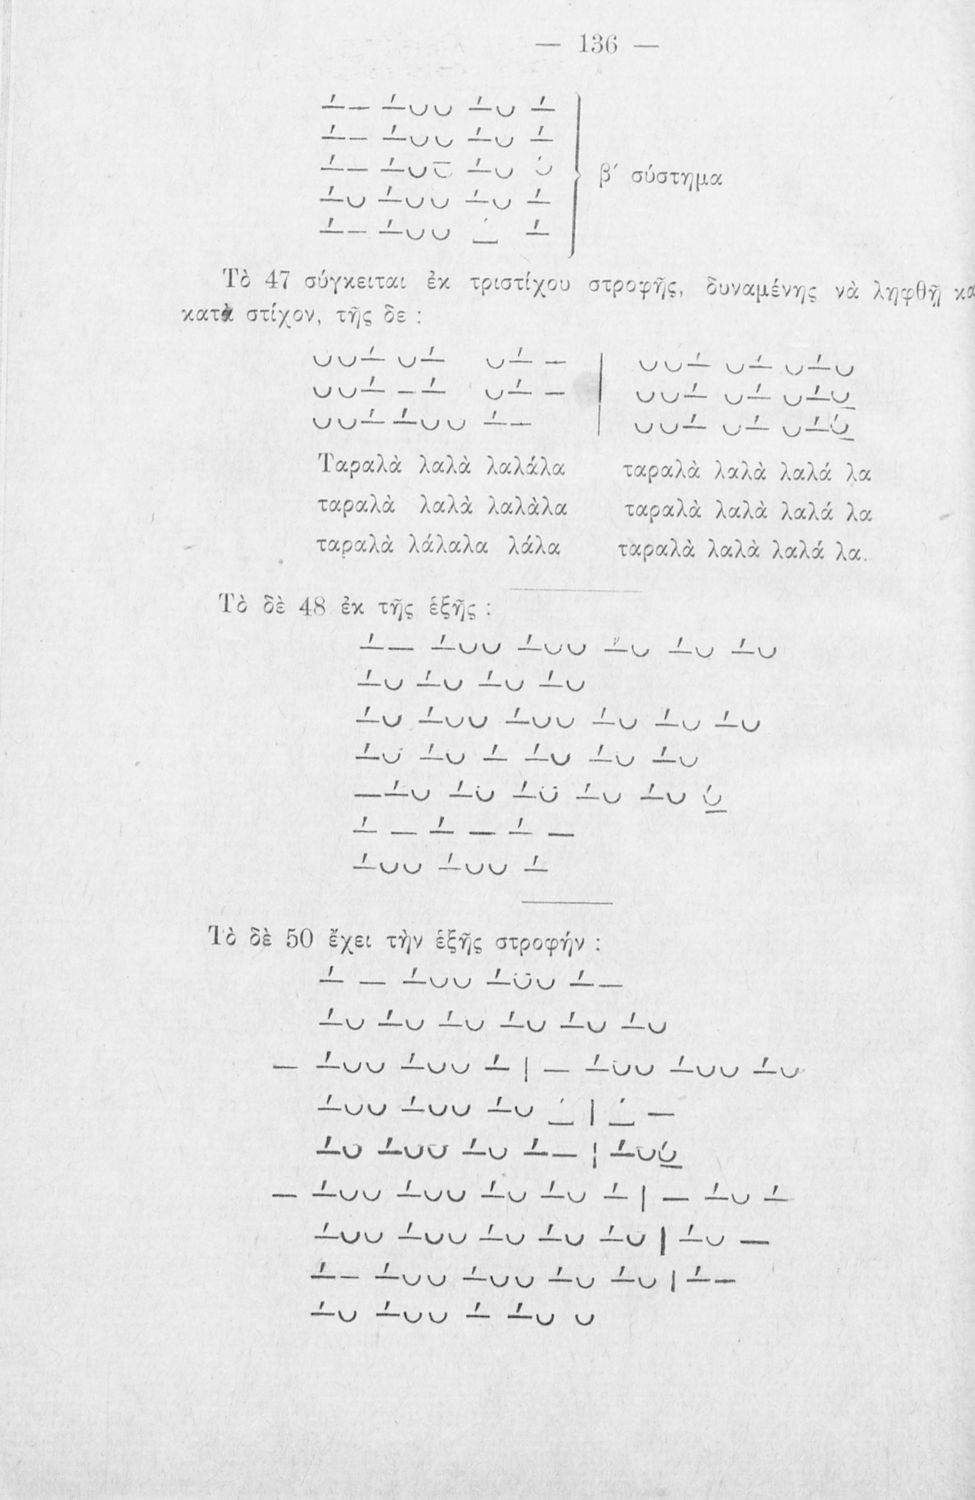 — 136 —
–́ – –́ ᴗ ᴗ –́ ᴗ –́
–́ – –́ ᴗ ᴗ –́ ᴗ –́
–́ – –́ ᴗ ᴗ̅ –́ ᴗ ᴗ́ β′ σύστημα
–́ ᴗ –́ ᴗ ᴗ –́ ᴗ –́
–́ – –́ ᴗ ᴗ –́ –́
Τὸ 47 σύγκειται ἐκ τριστίχου στροφῆς, δυναμένης νὰ ληφθῇ
κατὰ στίχον, τῆς δε :
ᴗ ᴗ –́ ᴗ –́ ᴗ –́ – | ᴗ ᴗ –́ ᴗ –́ ᴗ –́ ᴗ
ᴗ ᴗ –́ – –́ ᴗ –́ – | ᴗ ᴗ –́ ᴗ –́ ᴗ –́ ᴗ̲
ᴗ ᴗ –́ –́ ᴗ ᴗ –́ – | ᴗ ᴗ –́ ᴗ –́ ᴗ –́ ᴗ̲́
Ταραλὰ λαλὰ λαλάλα ταραλὰ λαλὰ λαλά λα
ταραλὰ λαλὰ λαλὰλα ταραλὰ λαλὰ λαλά λα
ταραλὰ λάλαλα λάλα ταραλὰ λαλὰ λαλά λα.
Τὸ δὲ 48 ἐκ τῆς ἑξῆς :
–́ – –́ ᴗ ᴗ –́ ᴗ ᴗ –́ ᴗ –́ ᴗ –́ ᴗ
–́ ᴗ –́ ᴗ –́ ᴗ –́ ᴗ
–́ ᴗ –́ ᴗ ᴗ –́ ᴗ ᴗ –́ ᴗ –́ ᴗ –́ ᴗ
–́ ᴗ –́ ᴗ –́ –́ ᴗ –́ ᴗ –́ ᴗ
– –́ ᴗ –́ ᴗ –́ ᴗ –́ ᴗ –́ ᴗ ᴗ̲́
–́ – –́ – –́ –
–́ ᴗ ᴗ –́ ᴗ ᴗ –́
Τὸ δὲ 50 ἔχει τὴν ἑξῆς στροφήν :
–́ – –́ ᴗ ᴗ –́ ᴗ ᴗ –́ –
–́ ᴗ –́ ᴗ –́ ᴗ –́ ᴗ –́ ᴗ –́ ᴗ
– –́ ᴗ ᴗ –́ ᴗ ᴗ –́ | – –́ ᴗ ᴗ –́ ᴗ ᴗ –́ ᴗ
–́ ᴗ ᴗ –́ ᴗ ᴗ –́ ᴗ –́ | –́ –
–́ ᴗ –́ ᴗ ᴗ –́ ᴗ –́ – | –́ ᴗ ᴗ̲́
– –́ ᴗ ᴗ –́ ᴗ ᴗ –́ ᴗ –́ ᴗ –́ | – –́ ᴗ –́
–́ ᴗ ᴗ –́ ᴗ ᴗ –́ ᴗ –́ ᴗ –́ ᴗ | –́ ᴗ –
–́ – –́ ᴗ ᴗ –́ ᴗ ᴗ –́ ᴗ –́ ᴗ | –́ –
–́ ᴗ –́ ᴗ ᴗ –́ –́ ᴗ ᴗ